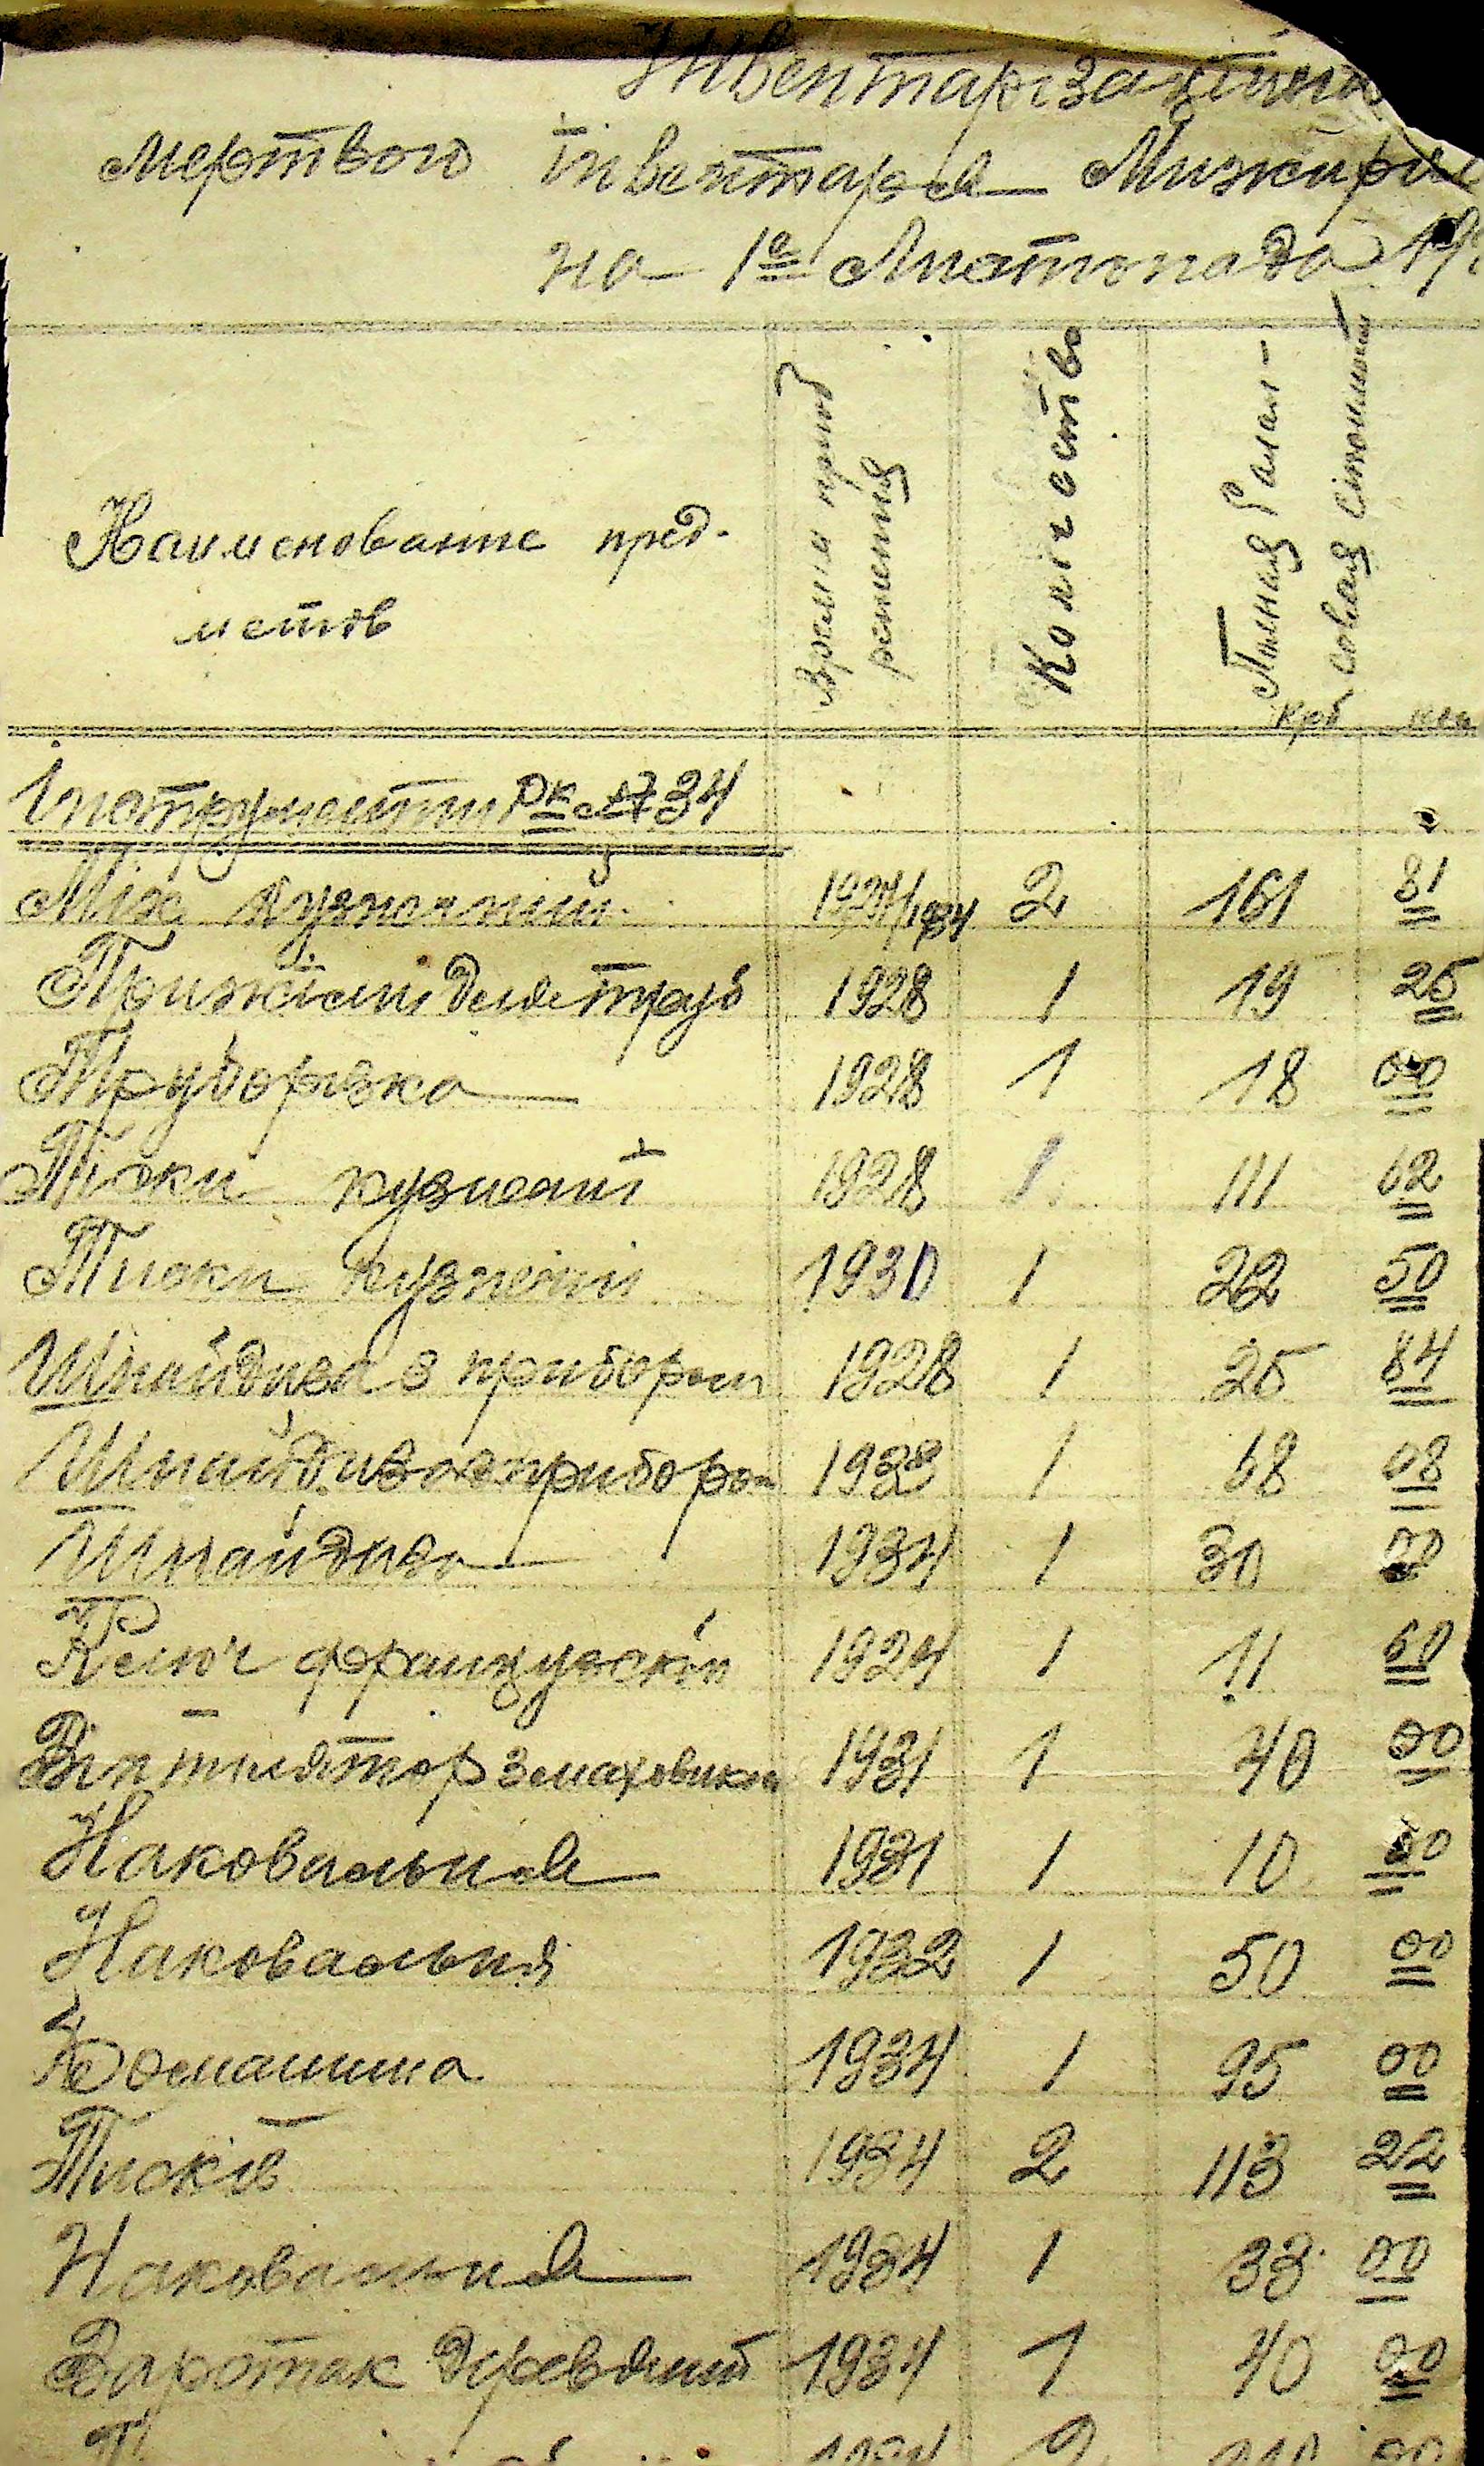 Інвентарізаційна
мертвого інвентаря Мижири
на 1го Листопада 19
Наименование пред-
метов
Время приоб
ретения
Количество
Полная Балан-
совая стоимость
крб коп
Інструменти Рк 34
Міх кузнечний 1927/1934 2 161 81
Прижім для труб 1928 1 19 25
Труборізка 1928 1 18 00
Тіски кузнечні 1928 1 111 62
Тиски кузнечні 1930 1 22 50
Шнайдиза з прибором 1928 1 25 84
Шнайдиза з прибором 1932 1 68 08
Шнайдиза 1934 1 30 00
Ключ французскій 1924 1 11 60
Вінтилятор з маховиком 1931 1 40 00
Наковальня 1931 1 10 00
Наковальня 1932 1 50 00
1934 1 95 00
Тисків 1934 2 113 22
Наковальня 1934 1 33 00
Варстак деревяний 1934 1 40 00
1934 2 00